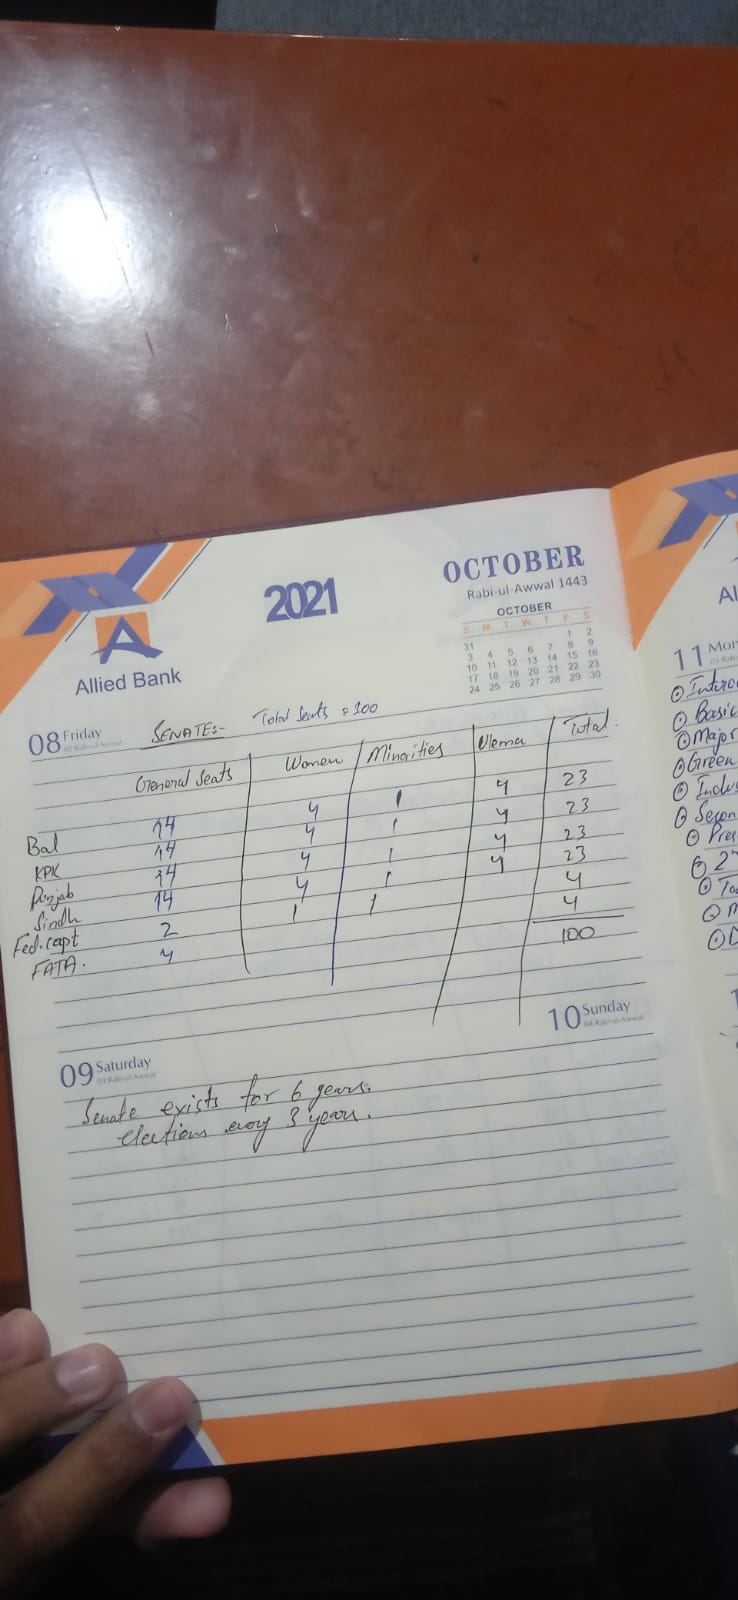 2021
OCTOBER
Rabi-ul-Awwal 1443
OCTOBER
S M T W T F S
31 1 2
3 4 5 6 7 8 9
10 11 12 13 14 15 16
17 18 19 20 21 22 23
24 25 26 27 28 29 30
Allied Bank
08 Friday
SENATE:- Total Seats = 100
General Seats Women Minorities Ulema Total.
Bal 14 4 1 4 23
KPK 14 4 1 4 23
Punjab 14 4 1 4 23
Sindh 14 4 1 4 23
Fed. capt 2 1 1 4
FATA. 4 4
100
09 Saturday
10 Sunday
04 Rabi-ul-Awwal
Senate exists for 6 years.
elections every 3 years.
Al
11 Mon
Basic
Major
Green
Indus
Secon
Pres
2